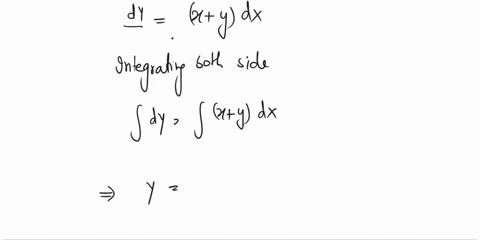 dy = (x+y) dx
Integrating both side
∫ dy, ∫ (x+y) dx
⇒ y =